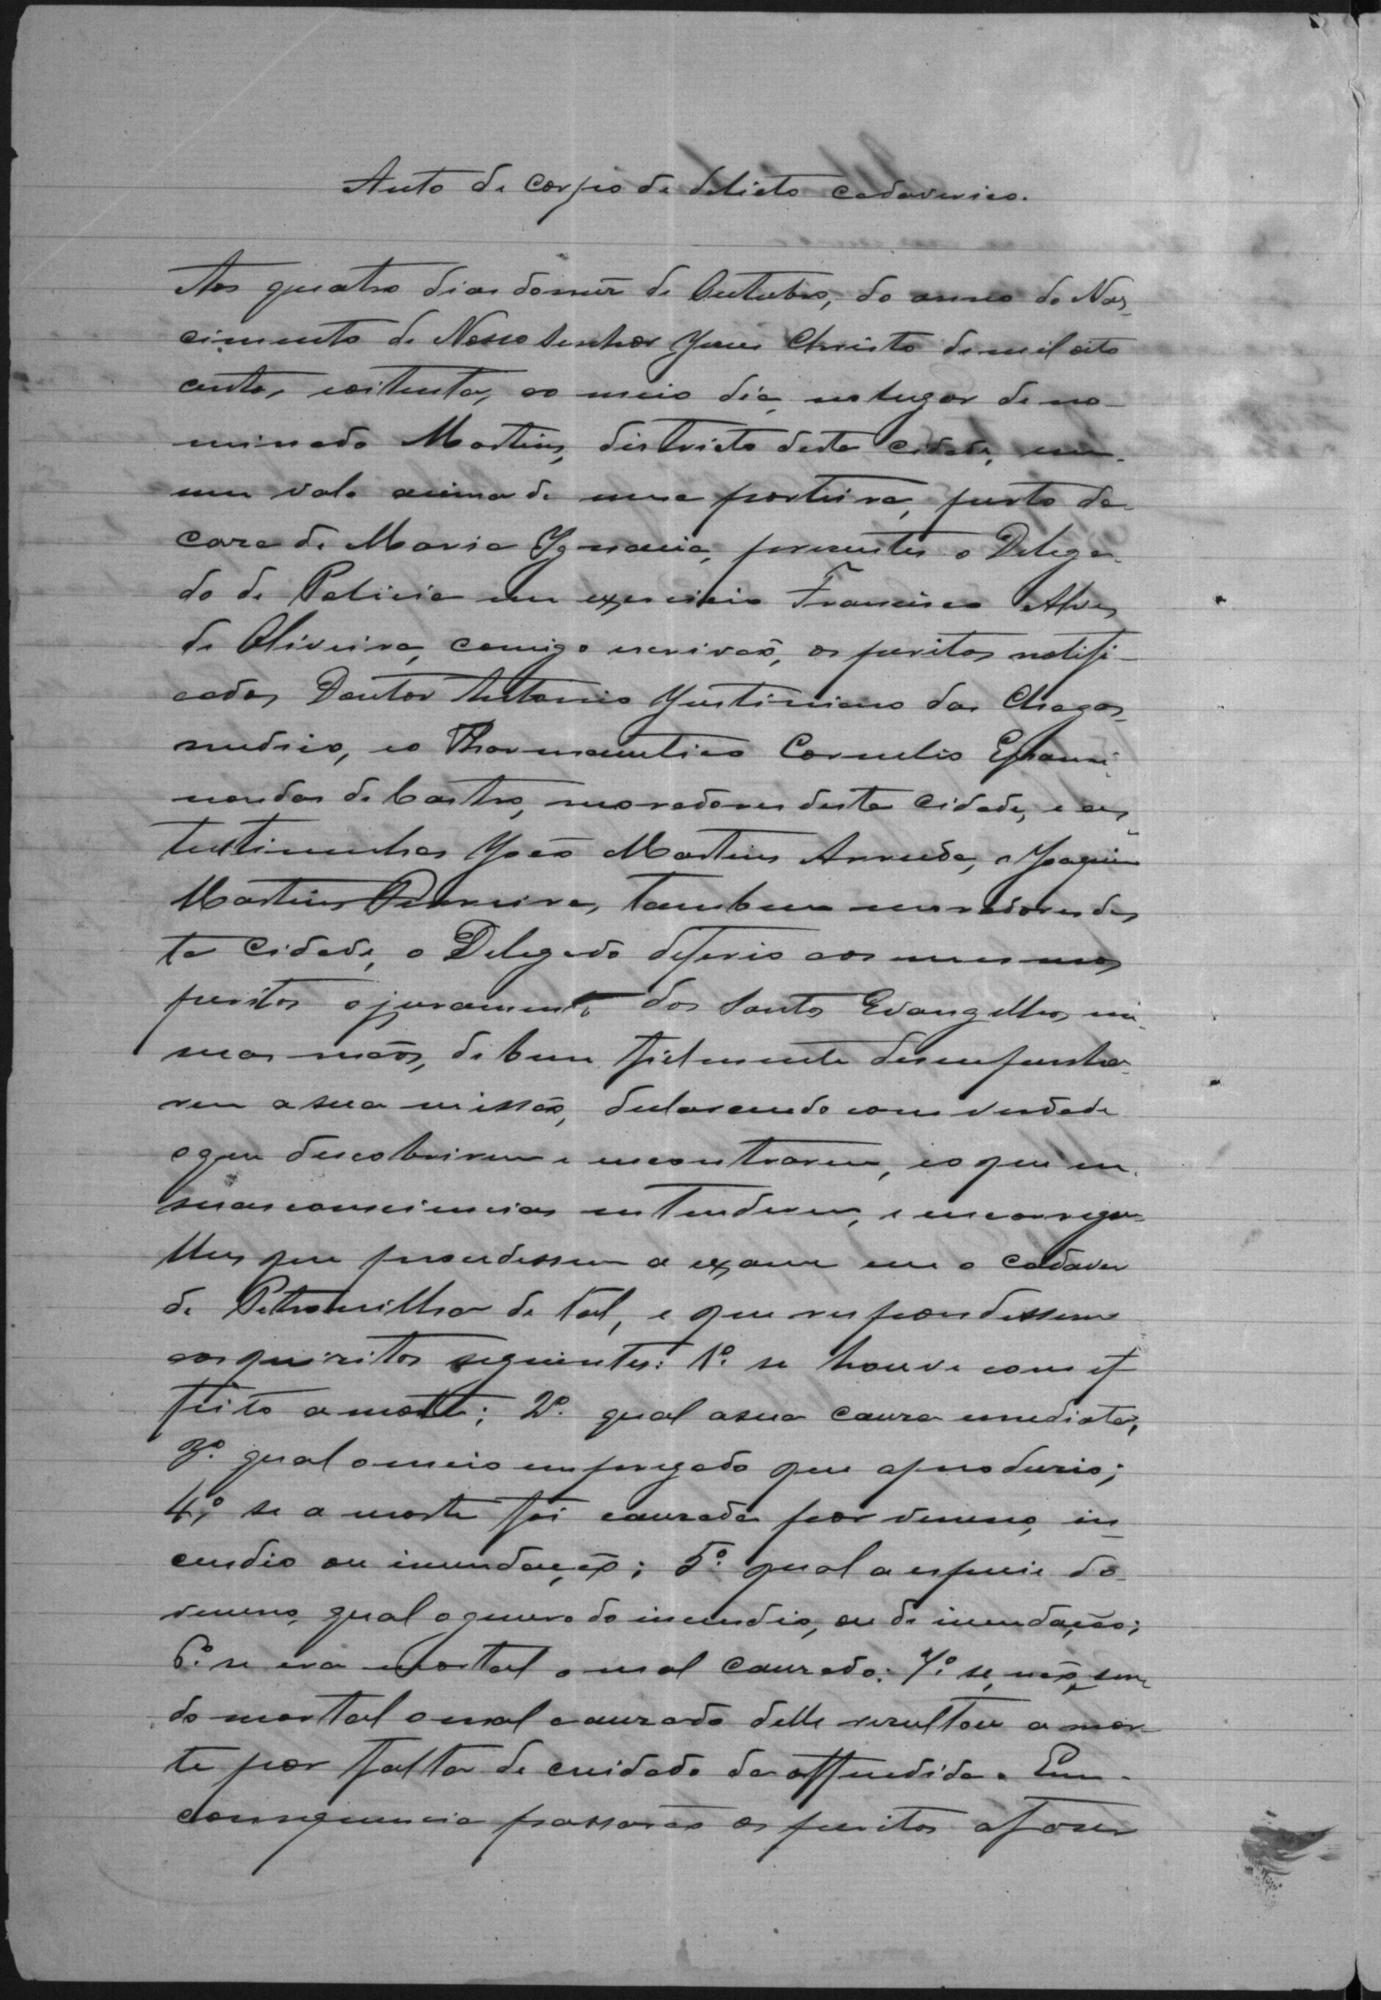 Auto de corpo de delicto cadaverico.
Aos quatro dias do mez de Outubro, do anno do Nas-
cimento de Nosso Senhor Jesus Christo de mil oito
centos, e oitenta, ao meio dia, no lugar deno-
minado Martins, districto desta cidade, em
um valo acima de uma porteira, perto da
casa de Maria Ignacia, presentes o Delega-
do de Policia em exercicio Francisco Alves
de Oliveira, comigo escrivaõ, os peritos notifi-
cados Doutor Antonio Justiniano das Chagas,
medico, e o Pharmaceutico Cornelio Epami-
nondas de Castro, moradores desta cidade, e as
testimunhas Joaõ Martins Arruda, e Joaquim
Martins Parreiras, tambem moradores des
ta cidade, o Delegado deferio aos mesmos
peritos o juramento dos Santos Evangelhos em
suas maõs, de bem fielmente desempenha-
rem a sua missaõ, declarando com verdade
o que descobrirem e encontrarem, e o que em
suas consciencias entenderem, e encarregou-
lhes que procedessem a exame em o cadaver
de Petronilha de tal, e que respondessem
aos quisitos seguintes: 1º. se houve com ef
feito a morte; 2º. qual a sua causa immediata,
3º. qual o meio empregado que a produsio;
4º. se a morte foi causada por veneno, in-
cendio ou inundaçaõ; 5º. qual a especie do
veneno, qual o genero do incendio, ou da inundaçaõ;
6º. se era mortal o mal causado: 7º. se, naõ sen
do mortal o mal causado delle resultou a mor
te por falta de cuidado da offendida. Em
consequencia passaraõ os peritos a faser